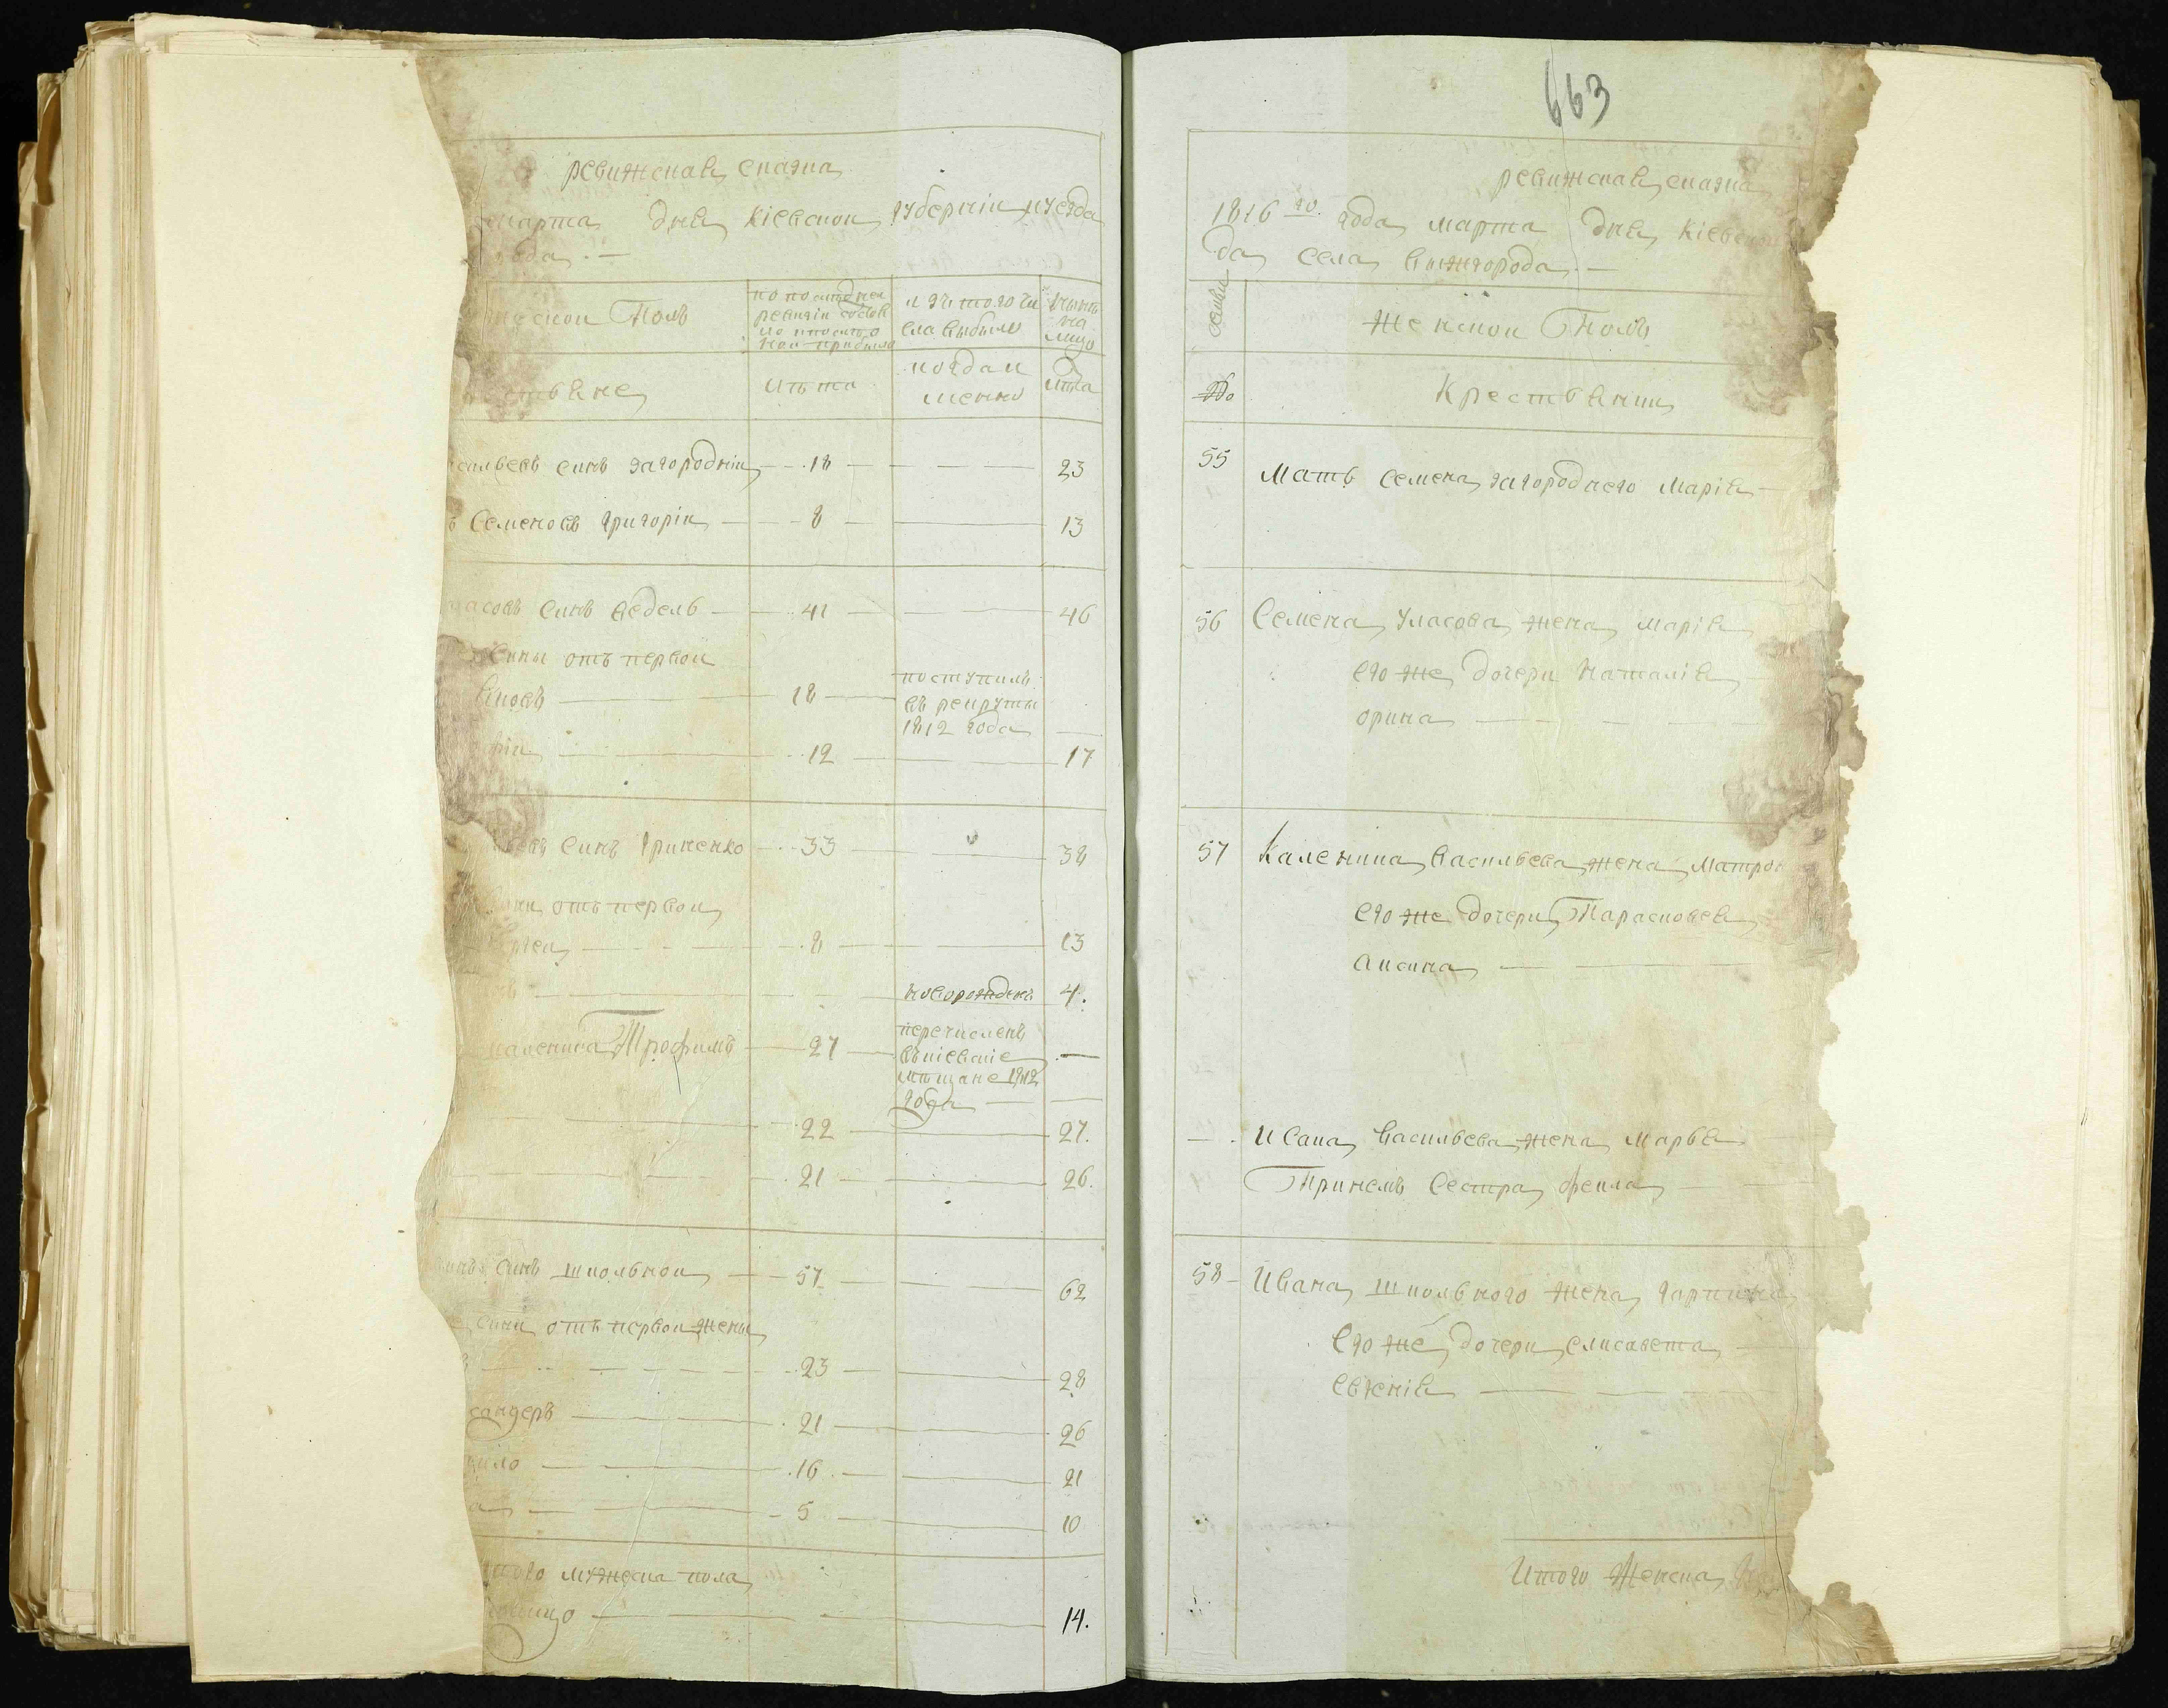 ревижская сказка
марта дня кіевской губерніи и уезда
года .—
жеской Полъ
по последней
ревизіи состо
яло и после о
ной прибыло
изъ того чи
сла выбыло
ныне
на
лицо
стьяне
лѣта
когда и
менно
лѣта
сильевъ синъ загородній 18 23
Семеновъ григорій 8 13
ласовъ Синъ 41 46
Сины отъ первой
яковъ 18
поступилъ
въ рекруты
1812 года
рій 12 17
Синъ Гриненко 33 38
отъ первой
8 13
новорожденъ 4.
каленика Трофимъ 27
перечисленъ
въ кіевскіе
мѣщане 1812
года
22 27.
21 26.
Синъ школьной 57 62
Сини отъ первой жены
23 28
сандеръ 21 26
ило 16 21
а 5 10
того мужеска пола
налицо 14.
663
ревижская сказка
1816 го года марта дня Кіевской
да села вижгорода .—
Семьи
Женской Полъ
№
Крестьянки
55 Мать Семена загороднего Марія
56 Семена Уласова жена Марія
его же дочери Наталія
орина
57 Каленика Васильева жена Матрон
его же дочери Парасковея
аксина
Исака Васильева жена Марья
Сестра фекла
58 Ивана школьного жена гарпина
его же дочери Елисавета
Евженія
Итого Женска